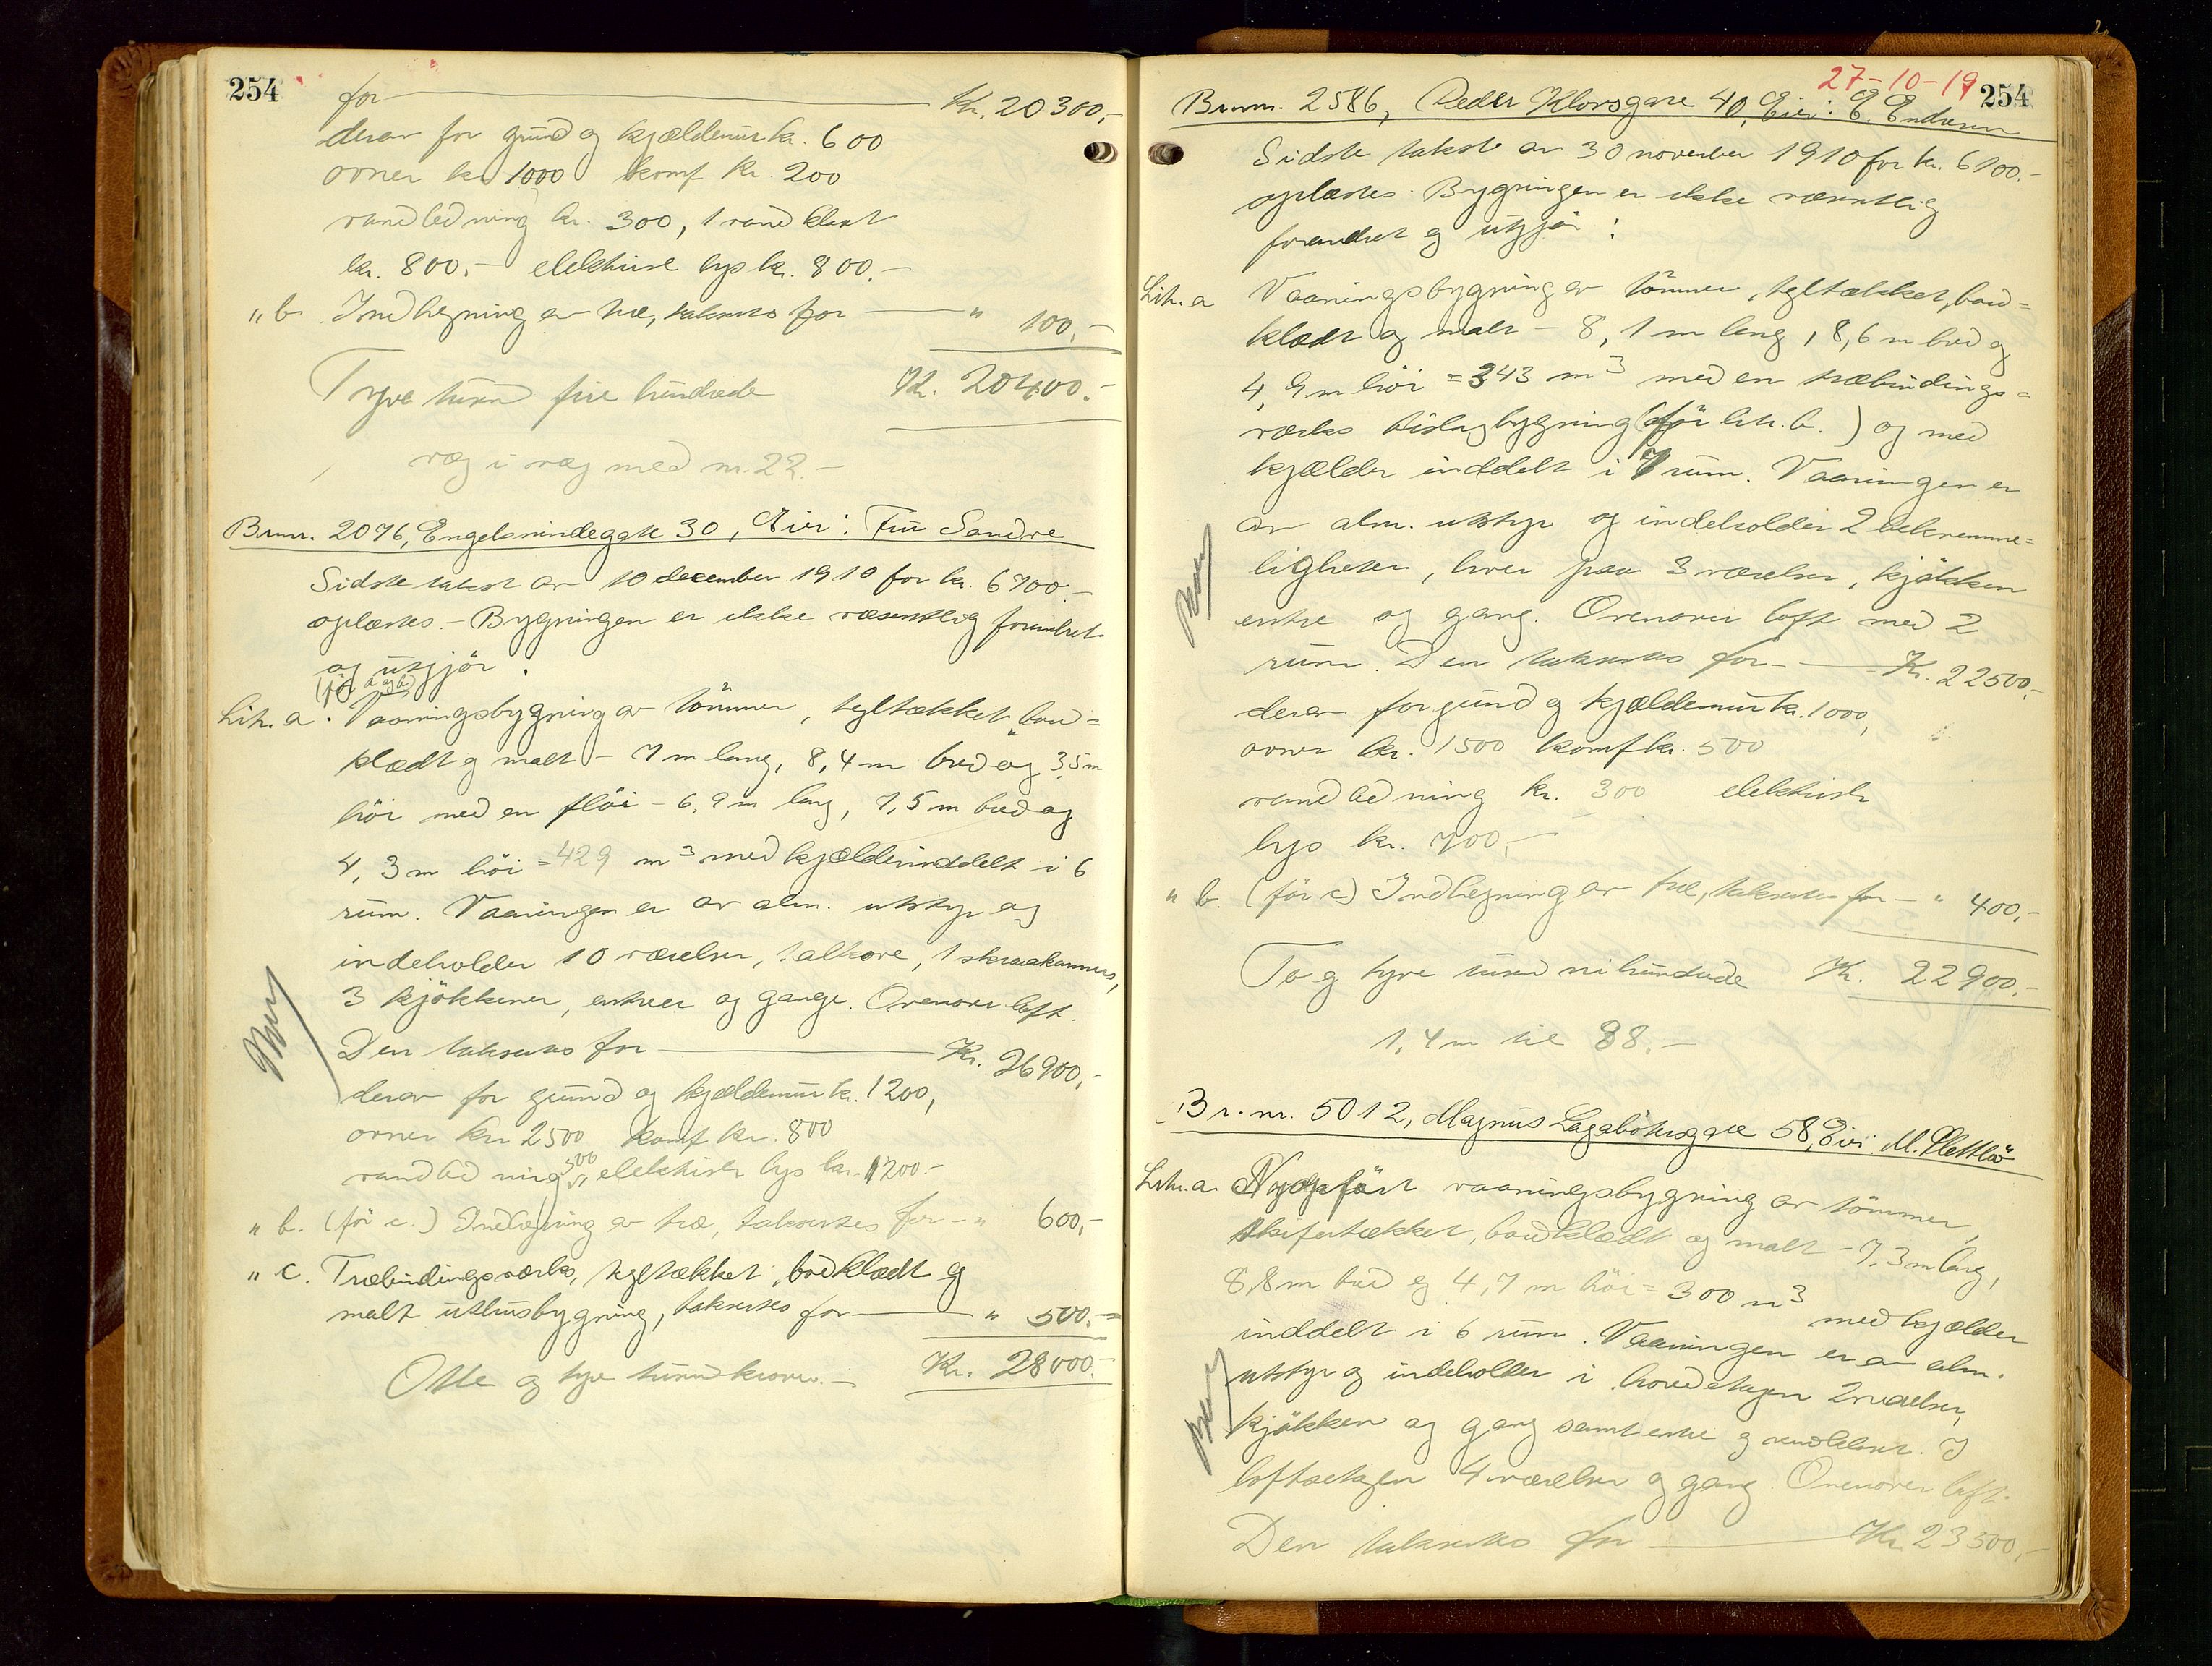 254
for Kr. 20300,-
derav for grund og kjældermur kr. 600
ovner kr. 1000 komf kr. 200
vandledning kr. 300, 1 vandklost
kr. 800,- elektrisk lys kr. 800.-
" b Indhegning av træ, takseres for " 100,-
Tyve tusen fire hundrede Kr. 20400.-
væg i væg med nr. 22.-
Br.nr. 2076, Engelsmindegate 30, Eier: Finn Sandve
Sidste takst av 10 december 1910 for kr. 6700.-
oplæstes. - Bygningen er ikke væsentlig forandret
og utgjør :
(før a og b)
Litr. a. Vaaningsbygning av tömmer, tegltækket, bord=
klædt og malt - 7 m lang, 8,4 m bred og 3,5 m
höi med en flöi - 6,9 m lang, 7,5 m bred og
4,3 m höi = 429 m3 med kjælder inddelt i 6
rum. Vaaningen er av alm. utstyr og
indeholder 10 værelser, 1 alkove, 1 skraakammers,
3 kjökkener, entreer og gange. Ovenover loft.
Den takseres for Kr. 26900,-
derav for grund og kjældermur kr. 1200,
ovner kr 2500 komf kr. 800
vandledning 500 elektrisk lys kr. 1200.-
" b. (för c.) Indhegning av træ, takseres for - " 600,-
" c. Træbindingsverks, tegltækket, bordklædt og
malt uthusbygning, takseres for " 500.-
Otte og tyve tusind kroner.- Kr. 28000.-
27-10-19
254
Br.nr. 2586, Peder Klovsgate 40, Eier: E. Endresen
Sidste takst av 30 november 1910 for kr. 6100.-
oplæstes. Bygningen er ikke væsentlig
forandret og utgjör :
Litr. a Vaaningsbygning av tömmer, tegltækket, bord=
klædt og malt - 8,1 m lang, 8,6 m bred og
4,9 m höi = 343 m3 med en træbindings=
verks tilslagbygning (för litr. b.) og med
kjælder inddelt i 7 rum. Vaaningen er
av alm. utstyr og indeholder 2 bekvemme=
ligheter, hver paa 3 værelser, kjökken
entre og gang. Ovenover loft med 2
rum. Den takseres for Kr. 22500,-
derav for grund og kjældermur kr. 1000,
ovner kr. 1500 komf kr. 500
vandledning kr. 300 elektrisk
lys kr. 700,-
" b. (för c) Indhegning av træ, takseres for - " 400,-
To og tyve tusend ni hundrede Kr. 22900.-
1,4 m til 38.-
Br. nr. 5012, Magnus Lagabötersgate 58, Eier: M. Slettbö
Litr. a. Nyopfört vaaningsbygning av tömmer,
skifertækket, bordklædt og malt - 7,3 m lang,
8,8 m bred og 4,7 m höi = 300 m3 med kjælder
inddelt i 6 rum. Vaaningen er av alm.
utstyr og indeholder i hovedetagen 2 værelser,
kjökken og gang samt entre og vandklost. I
loftsetagen 4 værelser og gang. Ovenover loft.
Den takseres for Kr. 23500,-